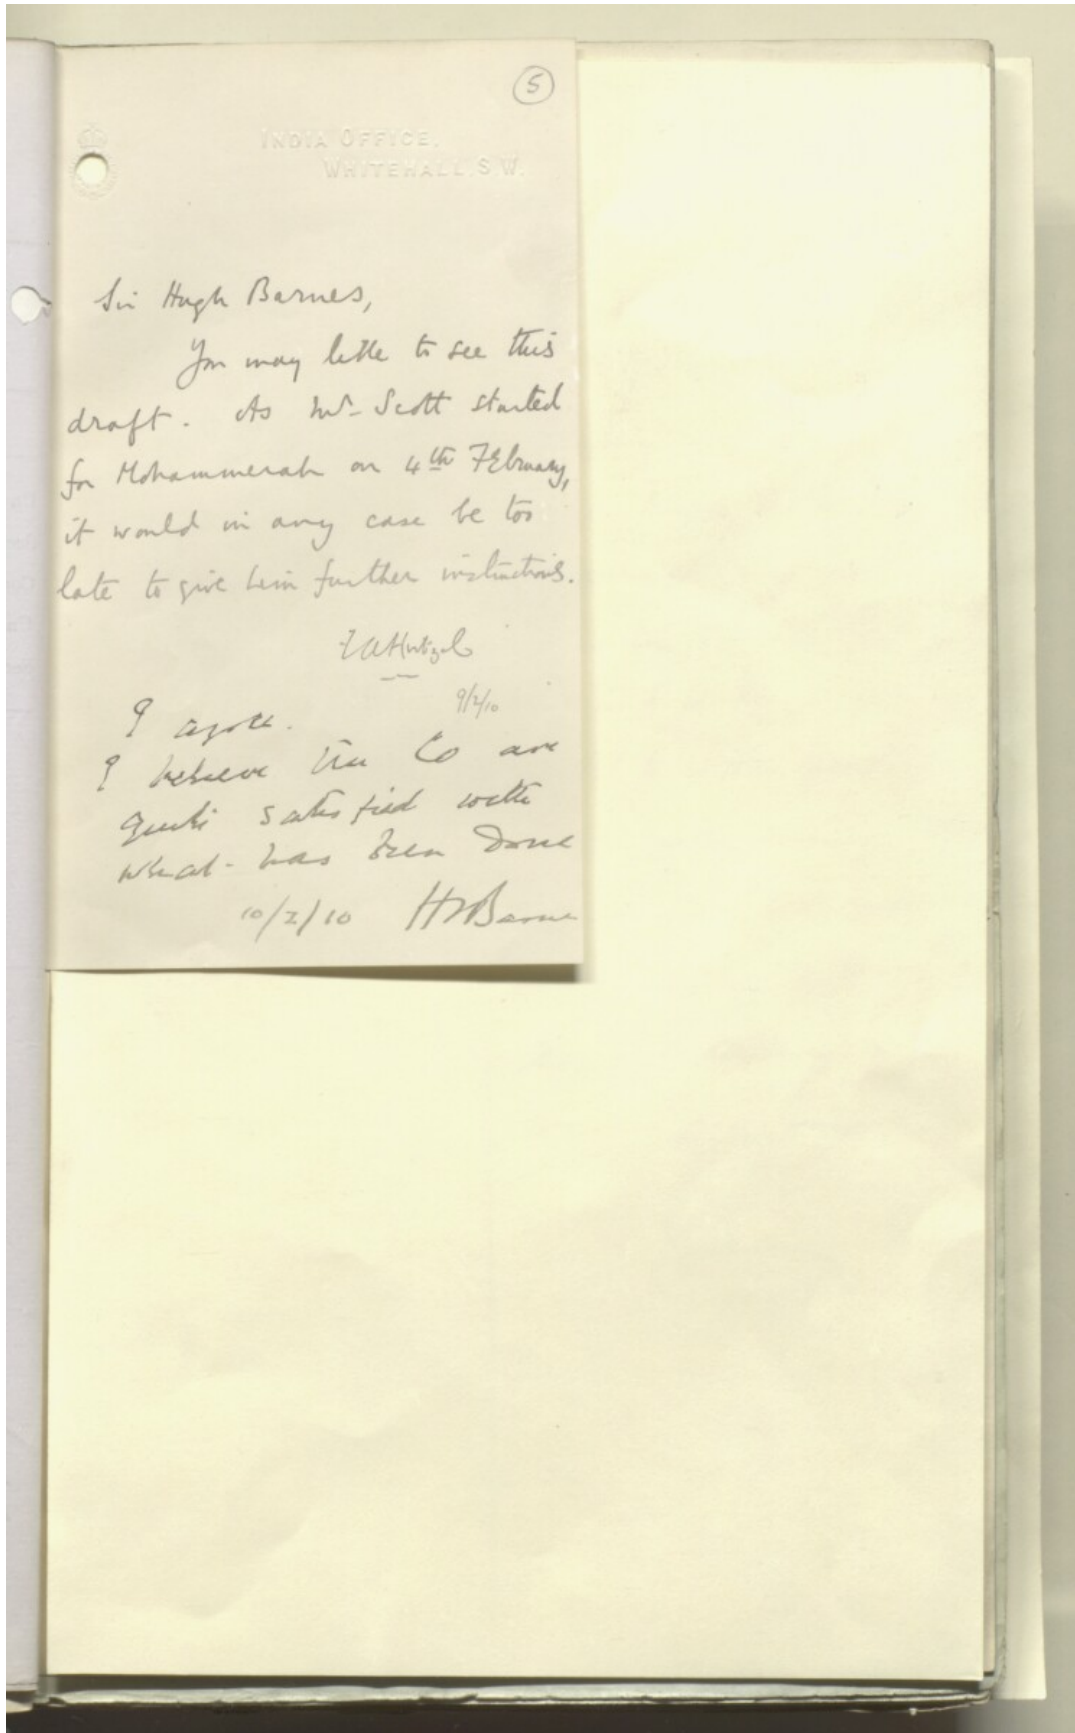 5
INDIA OFFICE,
WHITEHALL, S.W.
Sir Hugh Barnes,
You may like to see this
draft. As Mr. Scott started
for Mohammerah on 4th February,
it would in any case be too
late to give him further instructions.
FAHirtzel
9/2/10
I agree.
I believe the Co are
quite satisfied with
what has been done
10/2/10 HSBarnes